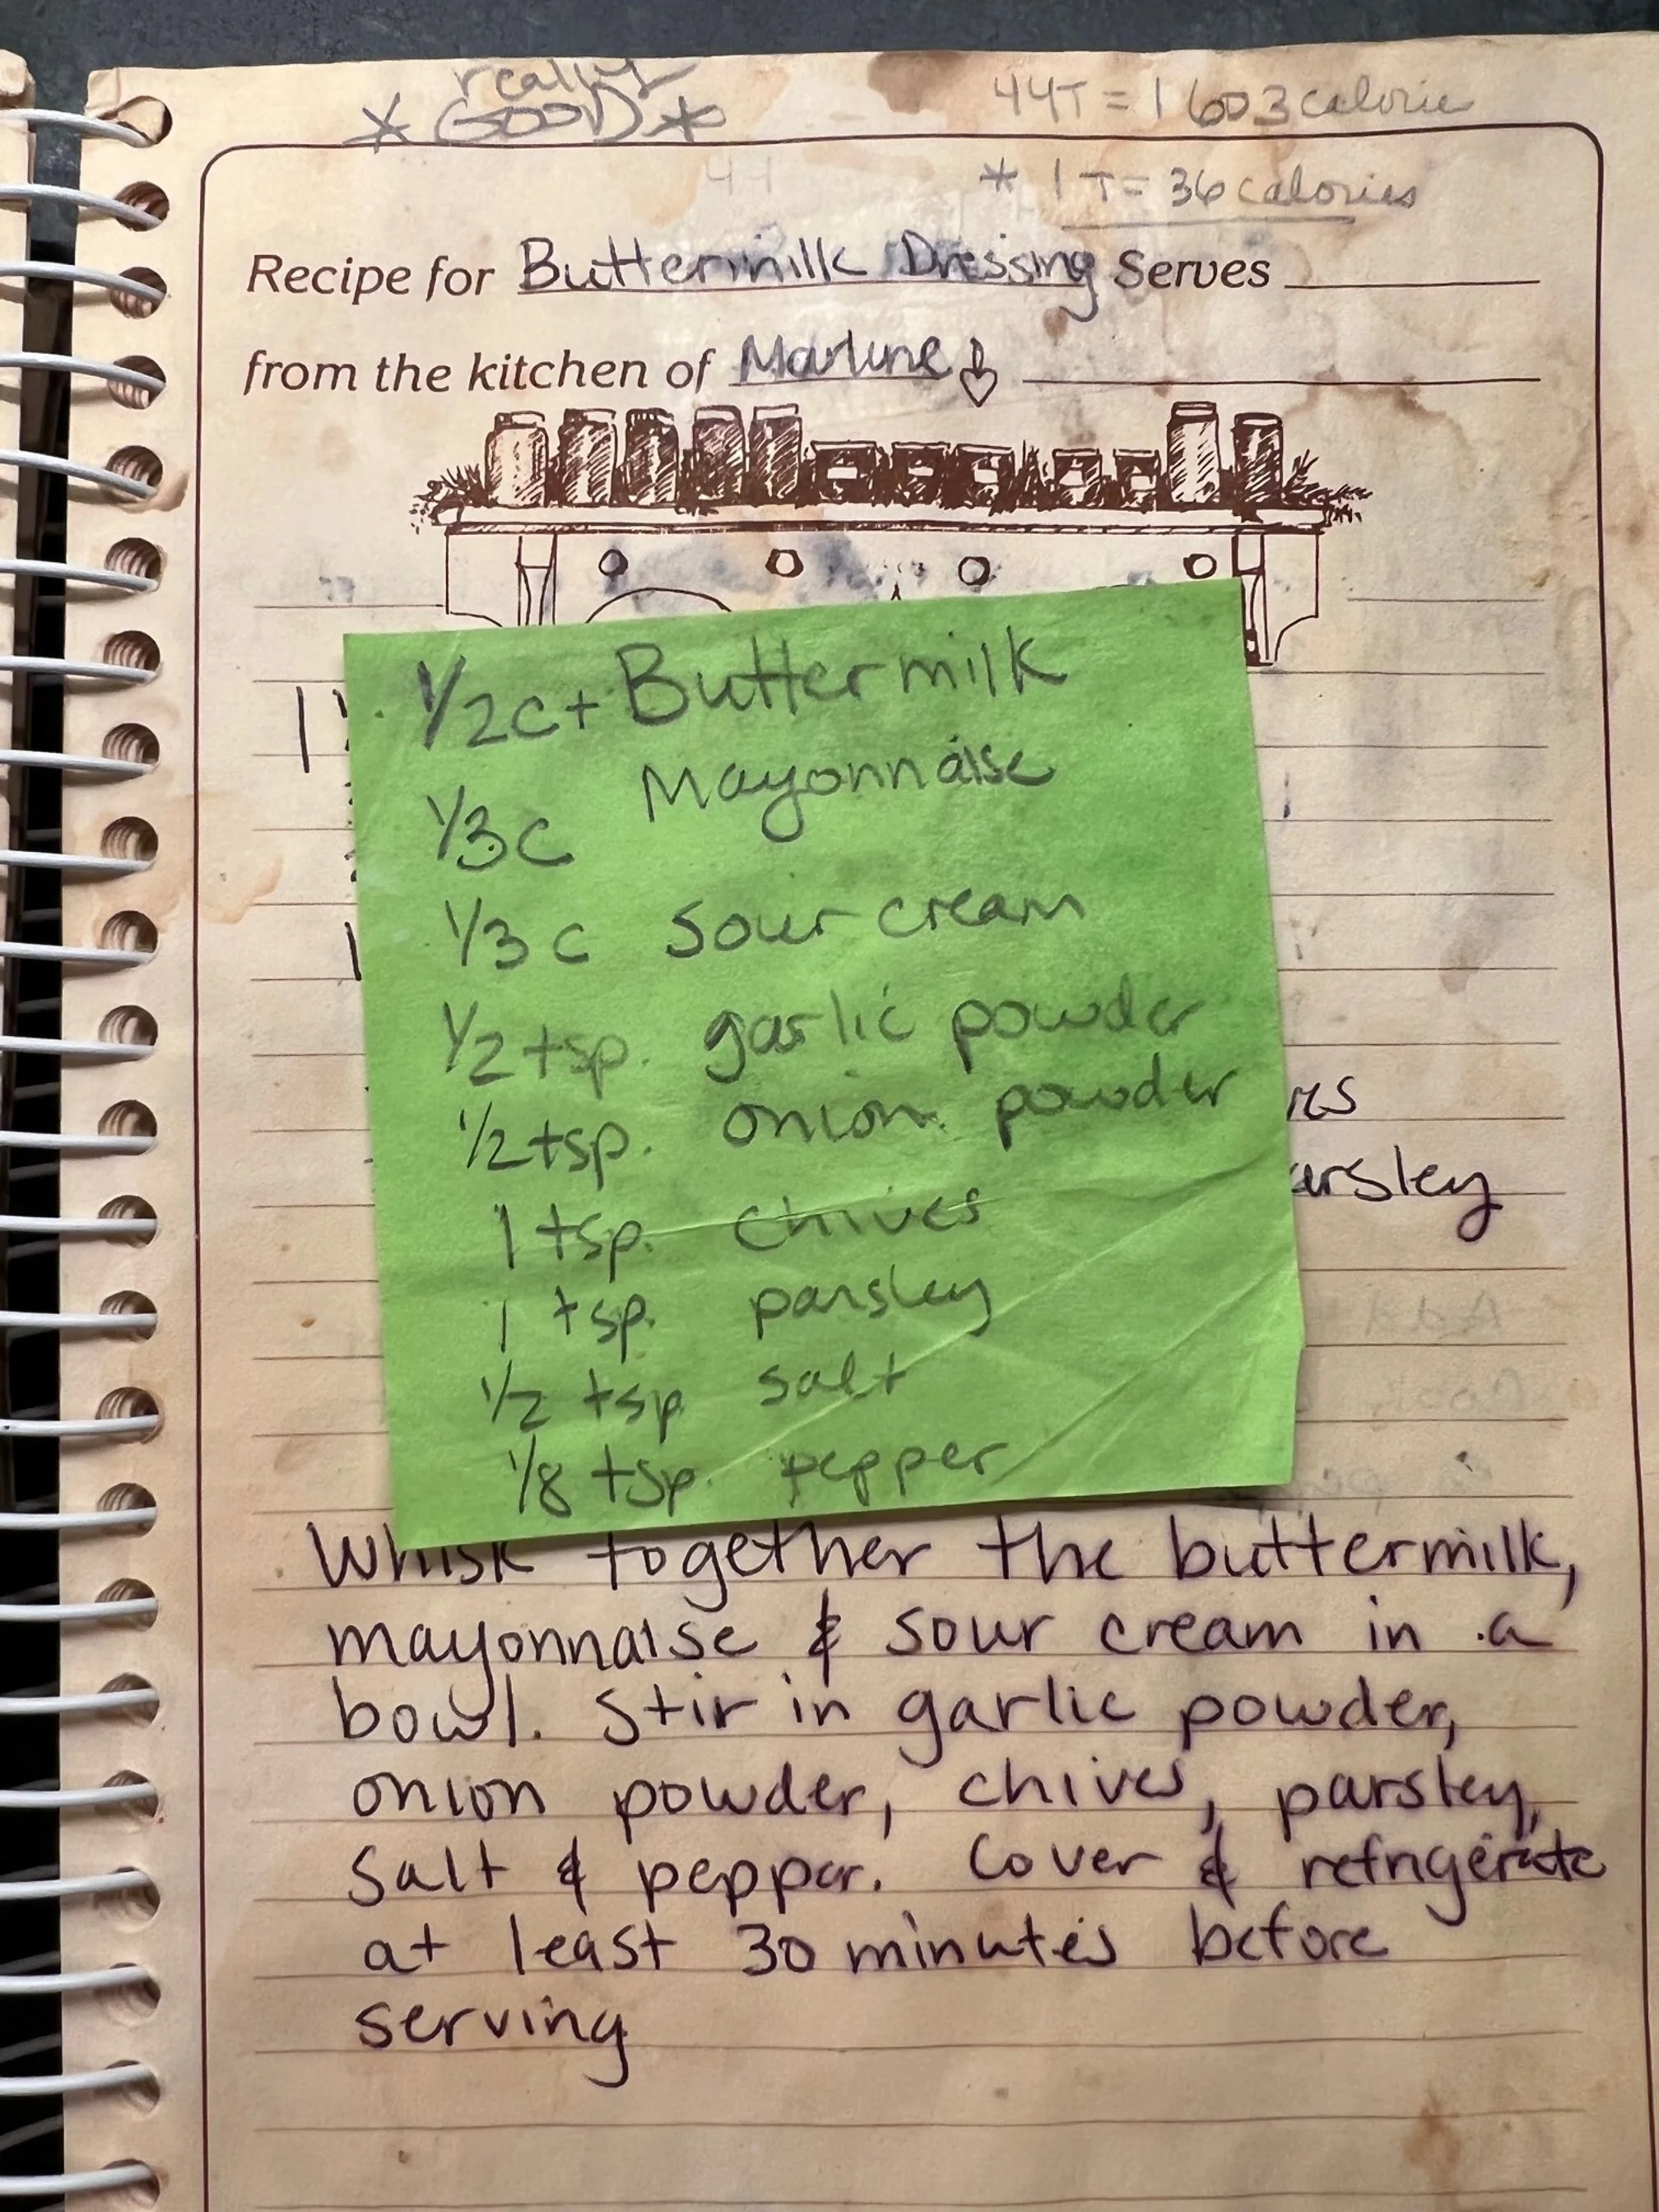 really
* GOOD *
44T = 1603 calorie
* 1 T = 36 calories
Recipe for Buttermilk Dressing Serves
from the kitchen of Marlene
1/2c + Buttermilk
1/3c Mayonnaise
1/3 c sour cream
1/2 tsp. garlic powder
1/2 tsp. onion powder
1 tsp. chives
1 tsp. parsley
1/2 tsp salt
1/8 tsp. pepper
arsley
Whisk together the buttermilk,
mayonnaise & sour cream in a
bowl. Stir in garlic powder,
onion powder, chives, parsley,
salt & pepper. Cover & refrigerate
at least 30 minutes before
serving